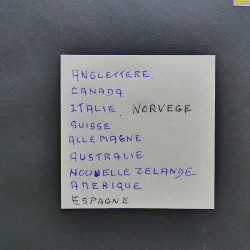 ANGLETTERE.
CANADA.
ITALIE. NORVEGE
SUISSE
ALLEMAGNE
AUSTRALIE
NOUVELLE ZELANDE
AMERIQUE
ESPAGNE